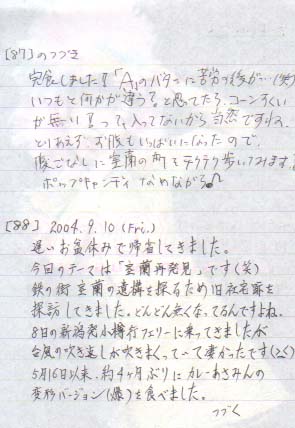 [87]のつづき
完食しました!!「A」のバターに苦労の後が…(笑)
いつもと何かが違う?と思ってたら、コーンすくい
が無い!?って、入ってないから当然ですね。
とりあえず、お腹もいっぱいになったので、
腹ごなしに室蘭の町をテクテク歩いてみます。
ポップキャンディなめながら♪
[88] 2004.9.10 (Fri.)
遅いお盆休みで帰省してきました。
今回のテーマは「室蘭再発見」です(笑)
鉄の街室蘭の遺構を探るため旧社宅街を
探訪してきました。どんどん無くなってるんですよね。
8日の新潟発小樽行フェリーに乗ってきましたが
台風の吹き返しが吹きまくっていて凄かったです(>_<)
5月16日以来、約4ヶ月ぶりにカレーあさみんの
変形バージョン(嬢)を食べました。
つづく